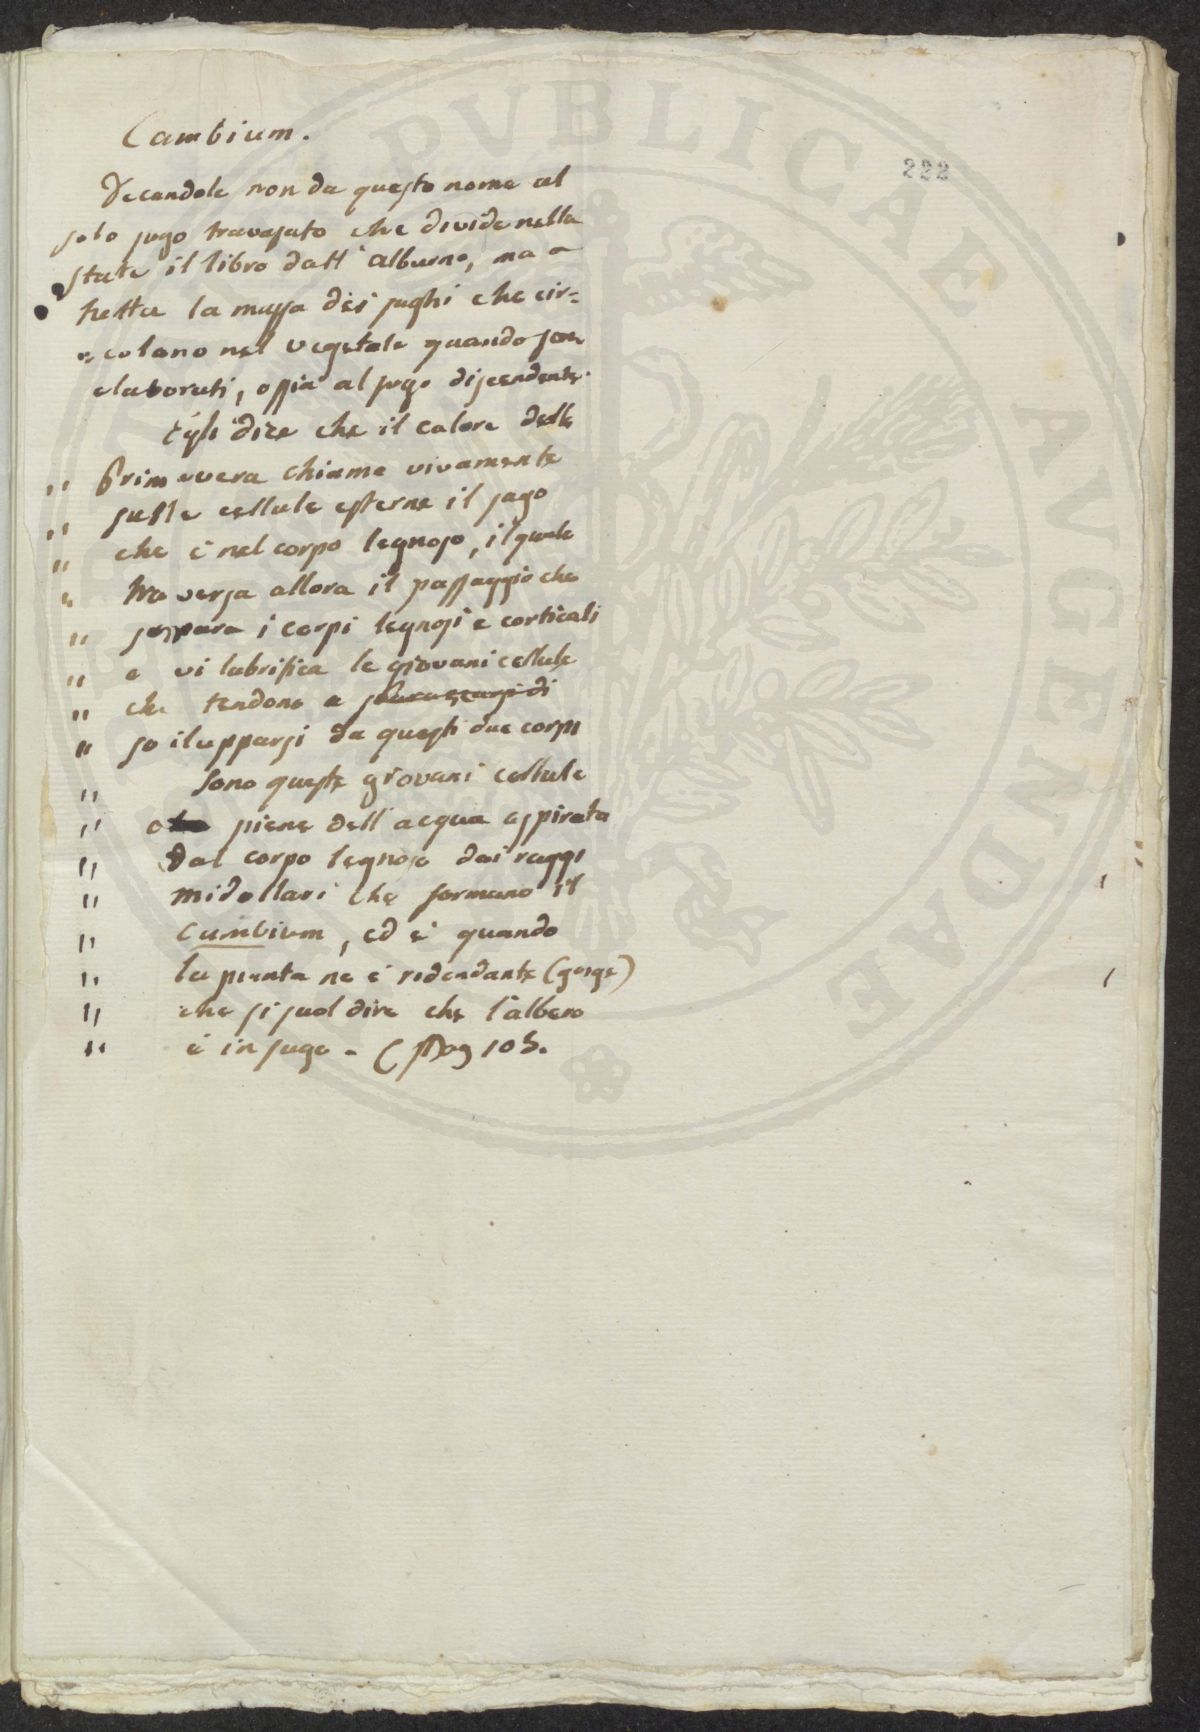 PVBLICAE AVGENDAE
222
Cambium.
Decandole non da questo nome al
solo sugo travasato che divide nella
state il libro dall' alburno, ma a
tutta la massa dei sughi che cir=
=colano nel vegetale quando son
elaborati, ossia al sugo discendente.
Egli dice che il calore della
" Primavera chiama vivamente
" sulle cellule esterne il sugo
" che è nel corpo legnoso, il quale
" traversa allora il passaggio che
" separa i corpi legnosi e corticali
" e vi lubrifica le giovani cellule
" che tendono a di
" svilupparsi da questi due corpi
" Sono queste giovani cellule
" piene dell' acqua aspirata
" dal corpo legnoso dai raggi
" midollari che formano il
" Cambium, ed è quando
" la pianta ne è redondante (gorge)
" che si suol dire che l'albero
" è in sugo - (Pag 105.